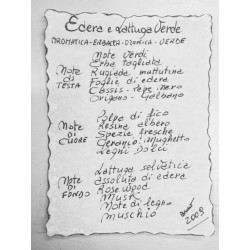 Edera e Lattuga Verde
AROMATICA-ERBACEA-OZONICA-VERDE
Note Verdi
Erba tagliata
Note DI TESTA
Rugiada mattutina
Foglie di edera
Cassis - Pepe nero
Origano - Galbano
Polpa di fico
Note DI CUORE
Resina albero
Spezie fresche
Geranio, Mughetto
Legni Dolci
Lattuga selvatica
Note DI FONDO
assoluta di edera
Rose wood
Musk
Note di legno
muschio
2009